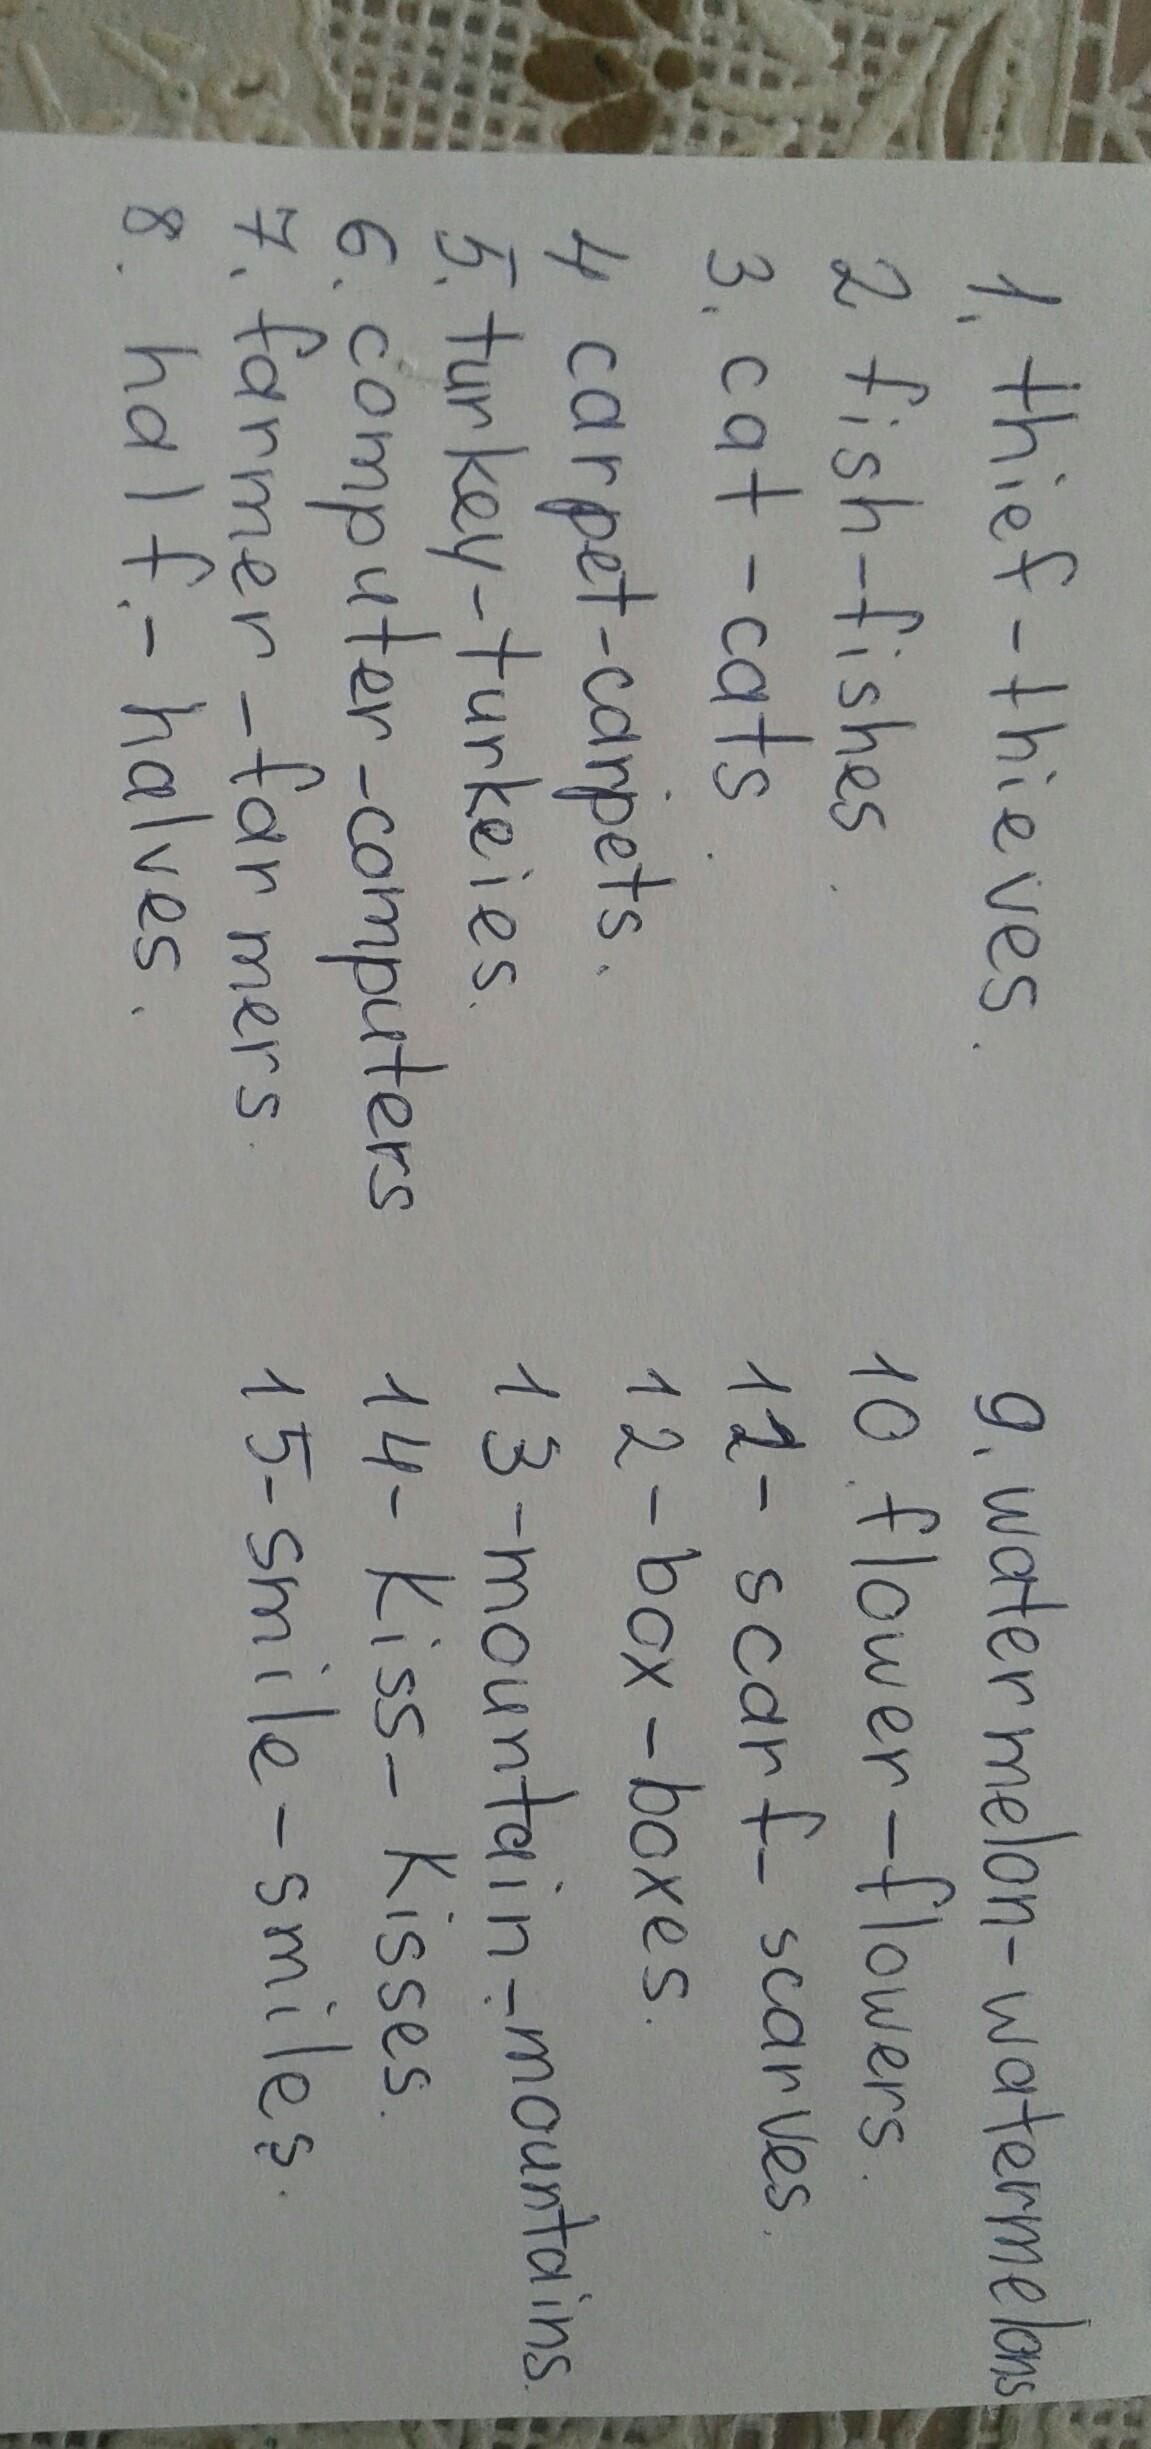 1. thief - thieves.
2 fish - fishes.
3. cat - cats.
4 carpet - carpets.
5. turkey - turkeies.
6. computer - computers
7. farmer - farmers.
8. half. - halves.
9. watermelon - watermelons
10. flower - flowers.
11 - scarf - scarves.
12 - box - boxes.
13 - mountain - mountains.
14 - kiss - kisses.
15 - smile - smiles.